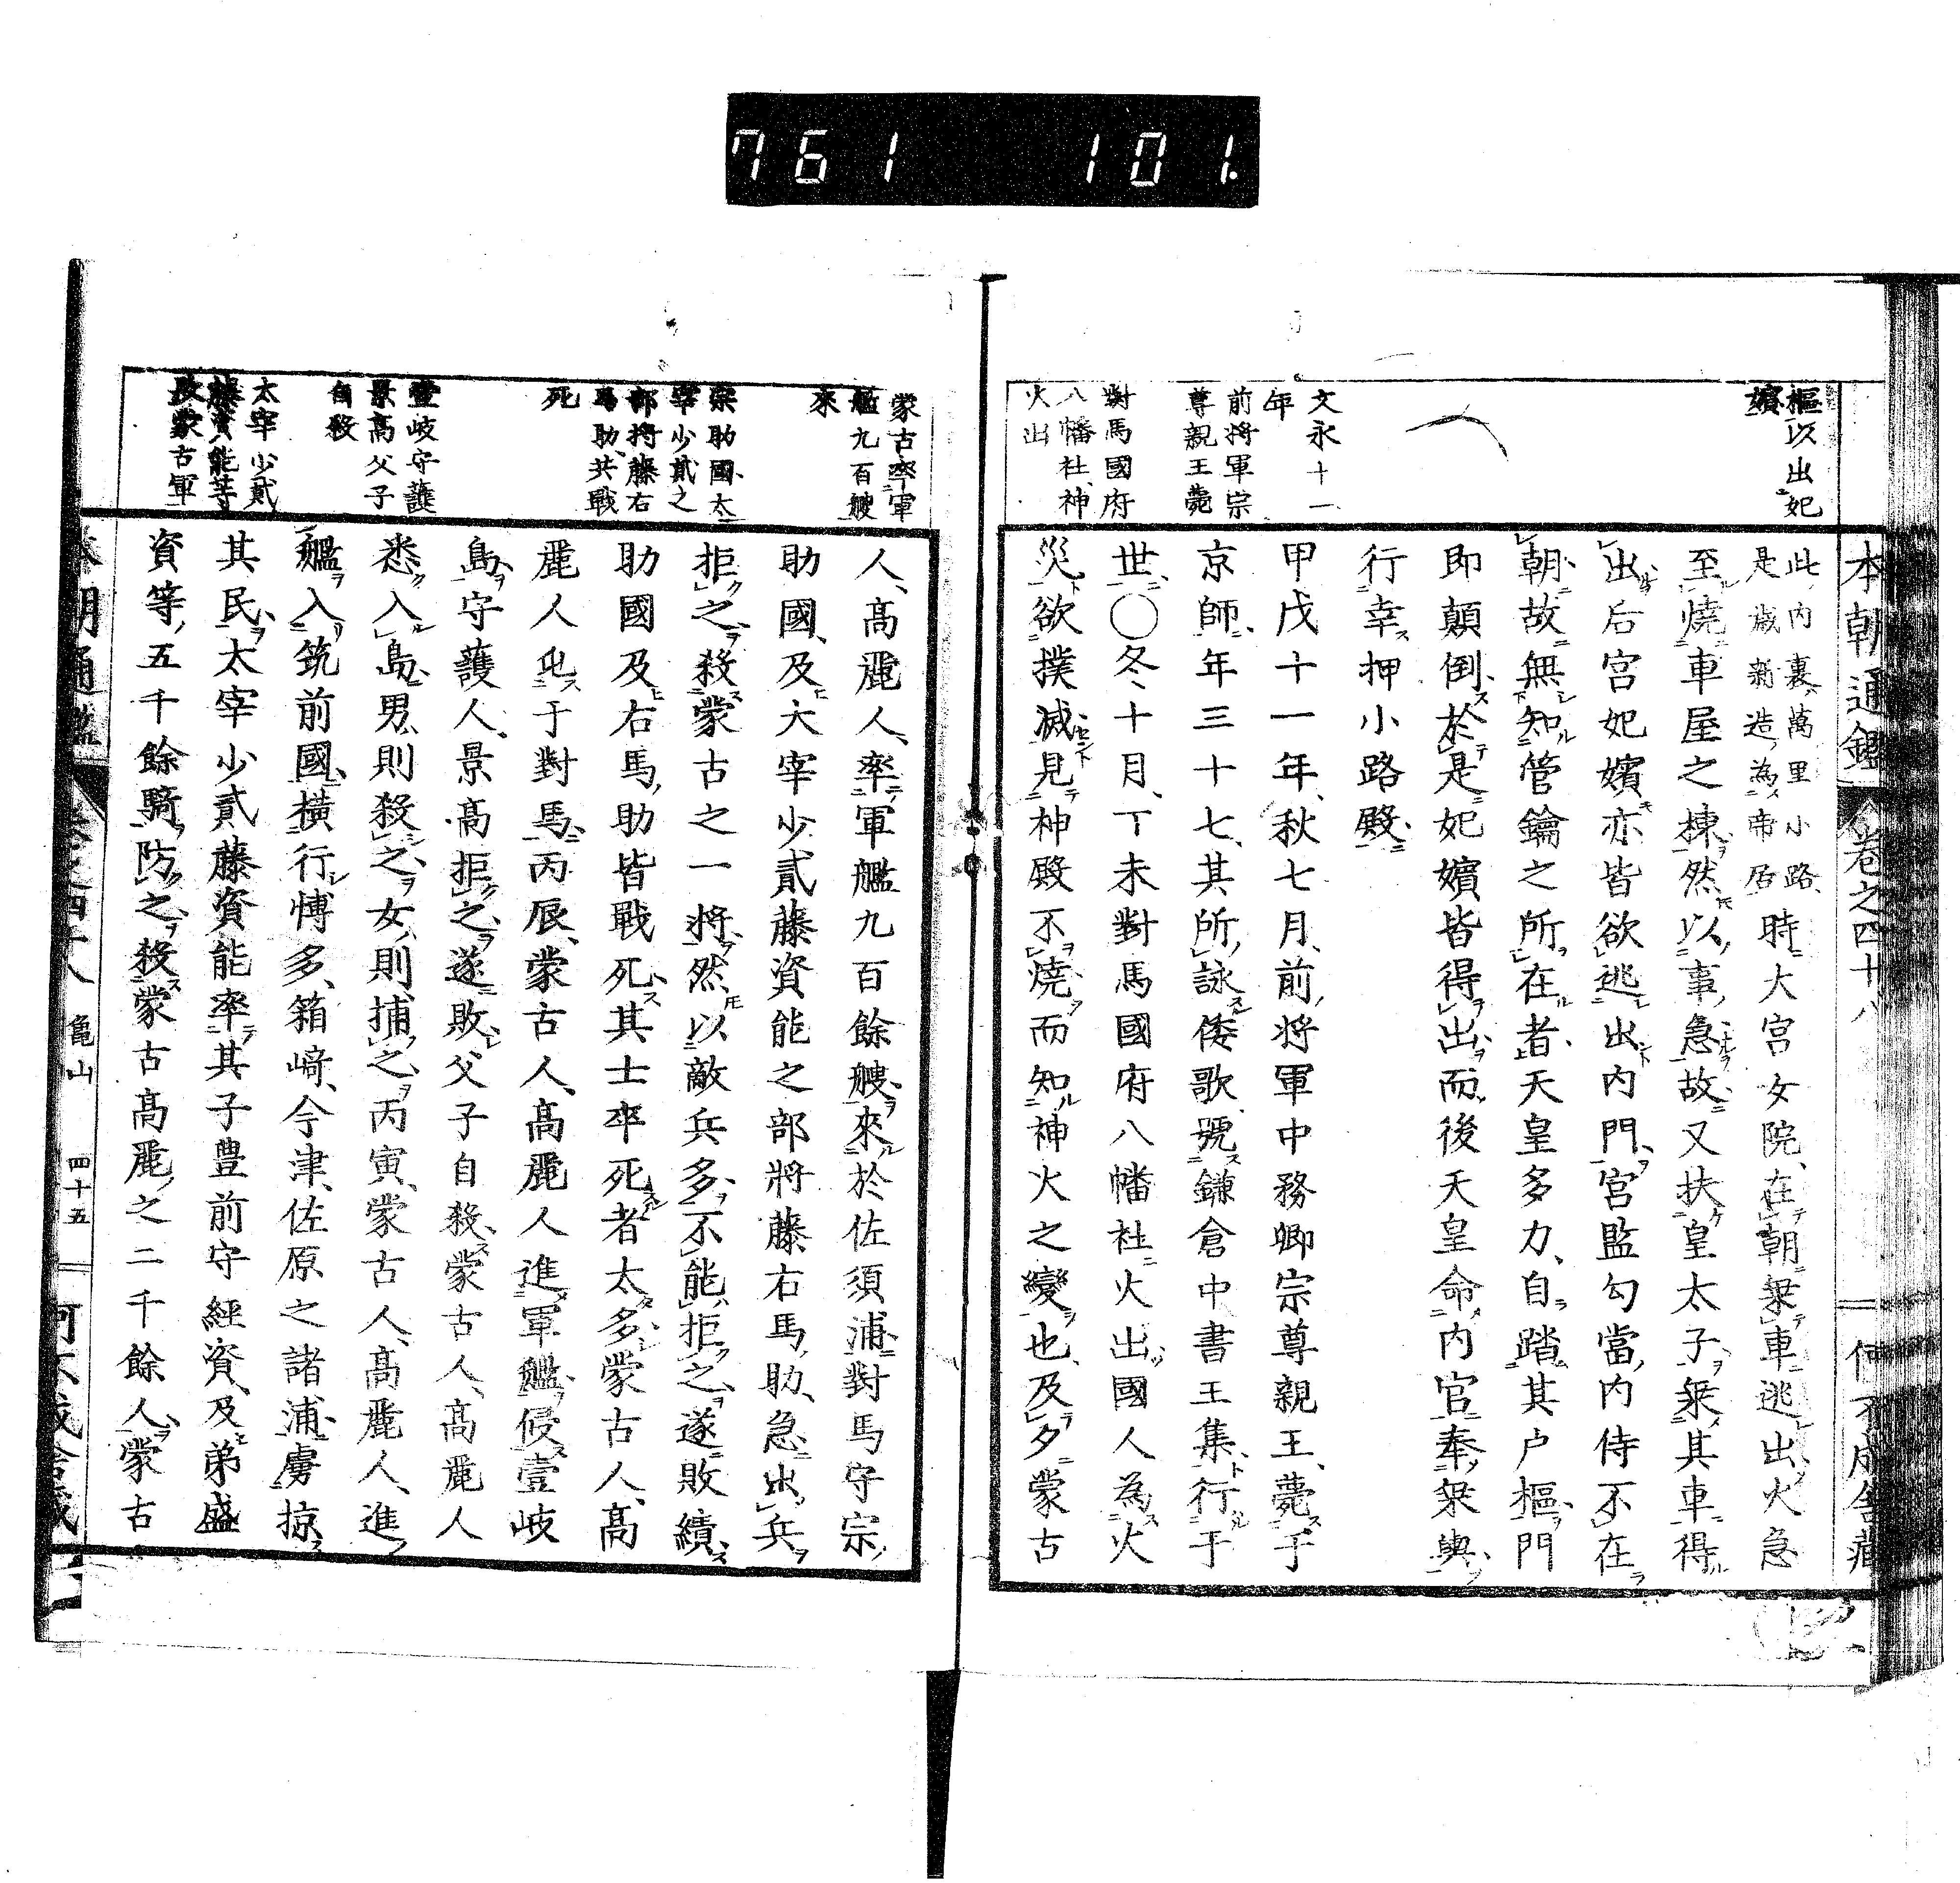 761 101.
樞以出妃
嬪
文永十一
年
前将軍宗
尊親王薨
對馬國府
八幡社、神
火出
本朝通鑑 卷之四十八
此、内裏、萬里小路、
是歳新造、為帝居
時大宮女院、在朝、乗車逃出、火急
至燒車屋之棟、然以事急故、又扶皇太子、乗其車、得
出、后宮妃嬪亦皆欲逃出内門、宮監勾當内侍不在
朝、故無知管鑰之所在者、天皇多力、自踏其户樞、門
即顛倒、於是妃嬪皆得出、而後天皇命内官奉乗輿、
行幸押小路殿、
甲戌十一年、秋七月、前将軍中務卿宗尊親王、薨于
京師、年三十七、其所詠倭歌、號鎌倉中書王集、行于
世、〇冬、十月、丁未對馬國府八幡社火出、國人為火
災、欲撲滅、見神殿不燒、而知神火之變也、及夕蒙古
蒙古率軍
艦九百艘
來
宗助國、太
宰少貳之
部将藤右
馬助、共戰
死
壹岐守護
景高父子
自殺
太宰少貳
藤資能等
敗蒙古軍
人、高麗人、率軍艦九百餘艘、來於佐須浦、對馬守宗
助國、及大宰少貳藤資能之部將藤右馬助、急出兵
拒之、殺蒙古之一将、然以敵兵多、不能拒之、遂敗績、
助國及右馬助皆戰死、其士卒死者太多、蒙古人、高
麗人屯于對馬、丙辰、蒙古人、高麗人進軍艦、侵壹岐
島、守護人景高拒之、遂敗、父子自殺、蒙古人、高麗人
悉入島、男則殺之、女則捕之、丙寅、蒙古人、高麗人、進
艦入筑前國、横行博多、箱﨑、今津、佐原之諸浦、虜掠
其民、太宰少貳藤資能率其子豊前守經資、及弟盛
資等、五千餘騎防之、殺蒙古高麗之二千餘人、蒙古
本朝通鑑 卷之四十八 亀山 四十五